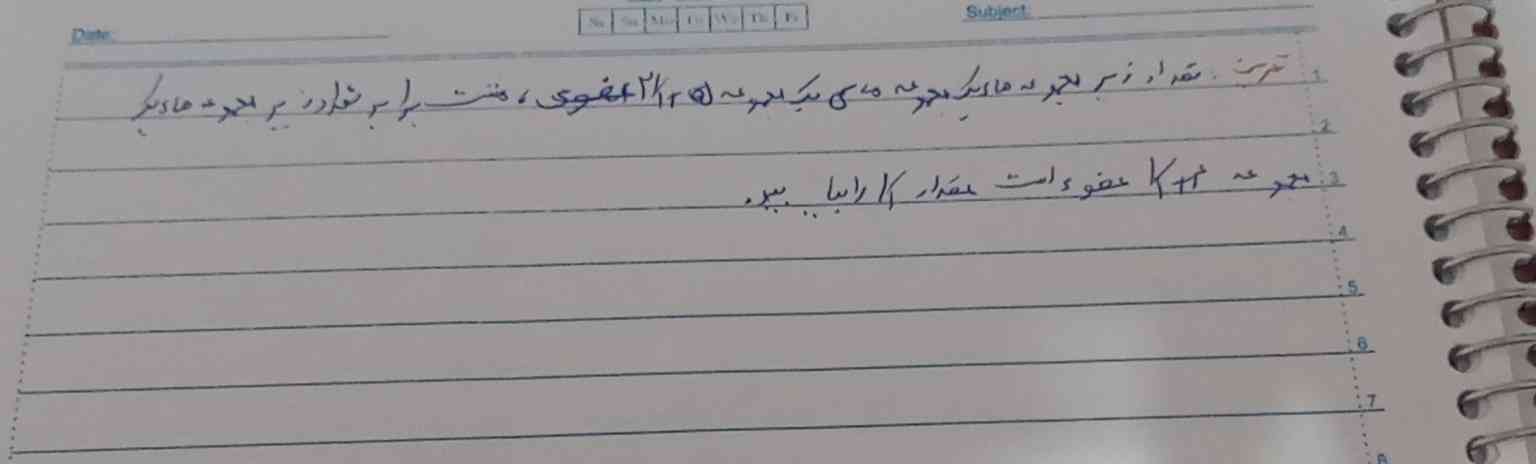 Date:
Sa Su Mo Tu We Th Fr
Subject:
1 تمرین: تعداد زیر مجموعه های یک مجموعه های یک مجموعه ۲k+۵ عضوی، هشت برابر تعداد زیر مجموعه های یک
2
3 مجموعه k+۴ عضوی است مقدار k را بیابید.
4
5
6
7
8